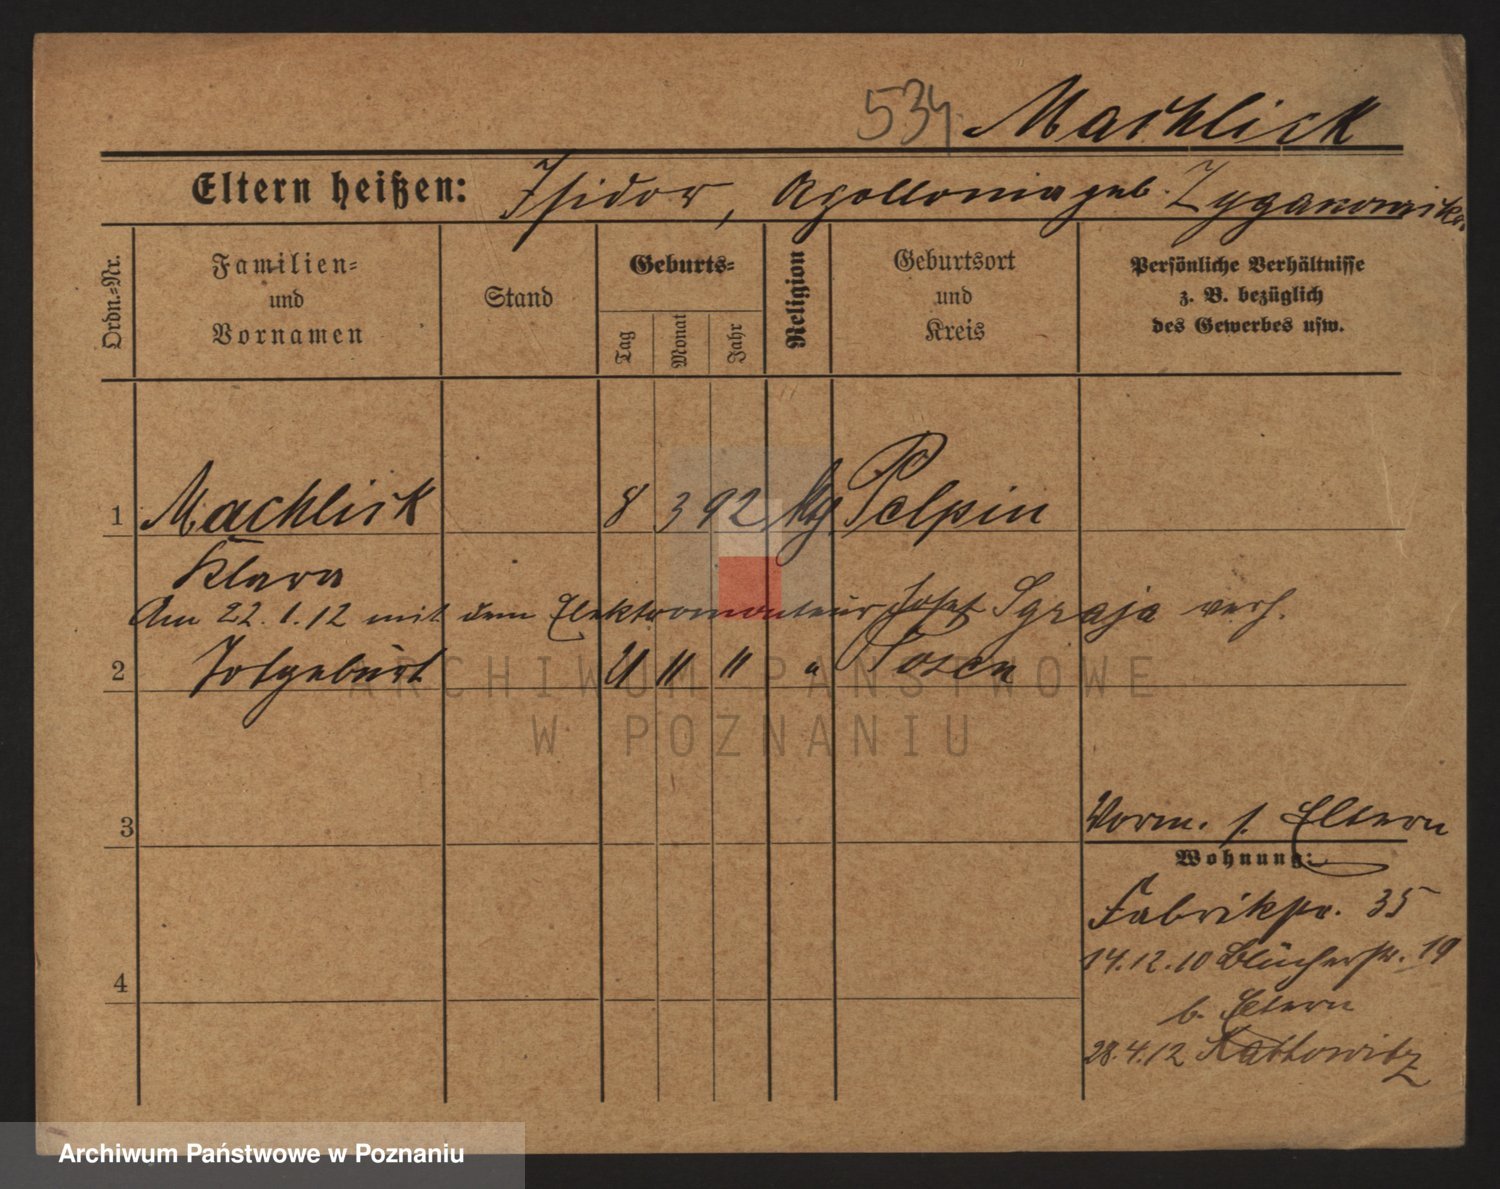 534 Machlick
Eltern heißen: Isidor, Apollonia geb. Zyganowska
Ordn.-Nr.
Familien-
und
Vornamen
Stand
Geburts-
Tag
Monat
Jahr
Religion
Geburtsort
und
Kreis
Persönliche Verhältnisse
z. B. bezüglich
des Gewerbes usw.
1 Machlick 8 3 92 Pelplin
Klara
Am 22.1.12 mit dem Elektromonteur Josef Sgraja verh.
2 Totgeburt 21 11 11 " Posen
ARCHIWUM PAŃSTWOWE
W POZNANIU
3
Vorm. s. Eltern
Wohnung:
Fabrikstr. 35
14.12.10 Blücherstr. 19
4
b. Eltern
28.4.12 Kattowitz
Archiwum Państwowe w Poznaniu